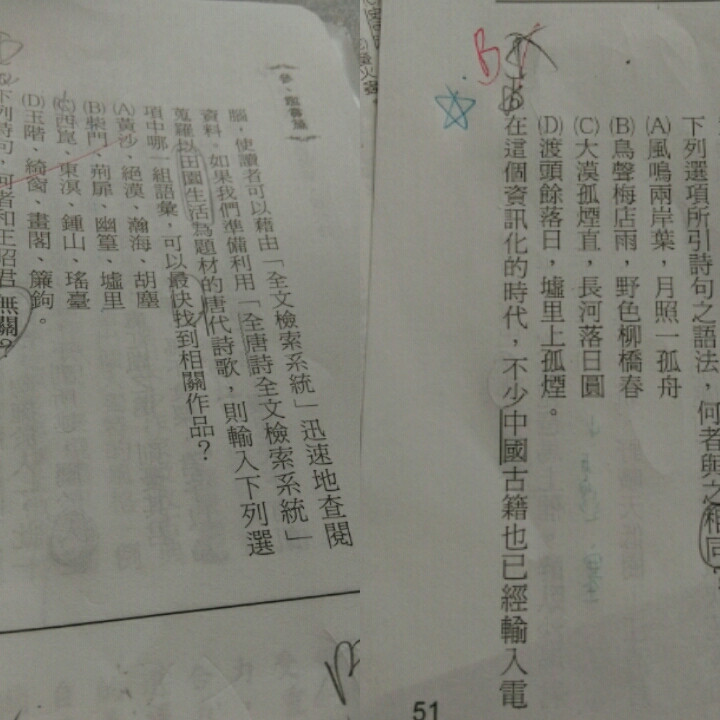 下列選項所引詩句之語法，何者與之相同
(A)風鳴兩岸葉，月照一孤舟
(B)鳥聲梅店雨，野色柳橋春
(C)大漠孤煙直，長河落日圓
(D)渡頭餘落日，墟里上孤煙。
B
在這個資訊化的時代，不少中國古籍也已經輸入電
51
腦，使讀者可以藉由「全文檢索系統」迅速地查閱
資料。如果我們準備利用「全唐詩全文檢索系統」
蒐羅以田園生活為題材的唐代詩歌，則輸入下列選
項中哪一組語彙，可以最快找到相關作品？
(A)黃沙、絕漠、瀚海、胡塵
(B)柴門、荊扉、幽篁、墟里
(C)西崑、東溟、鍾山、瑤臺
(D)玉階、綺窗、畫閣、簾鉤。
下列詩句，何者和王昭君無關？